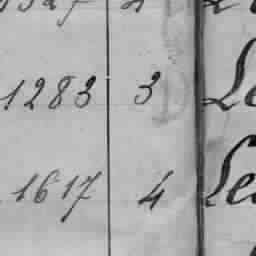 1283 3 Le
1617 4 Le